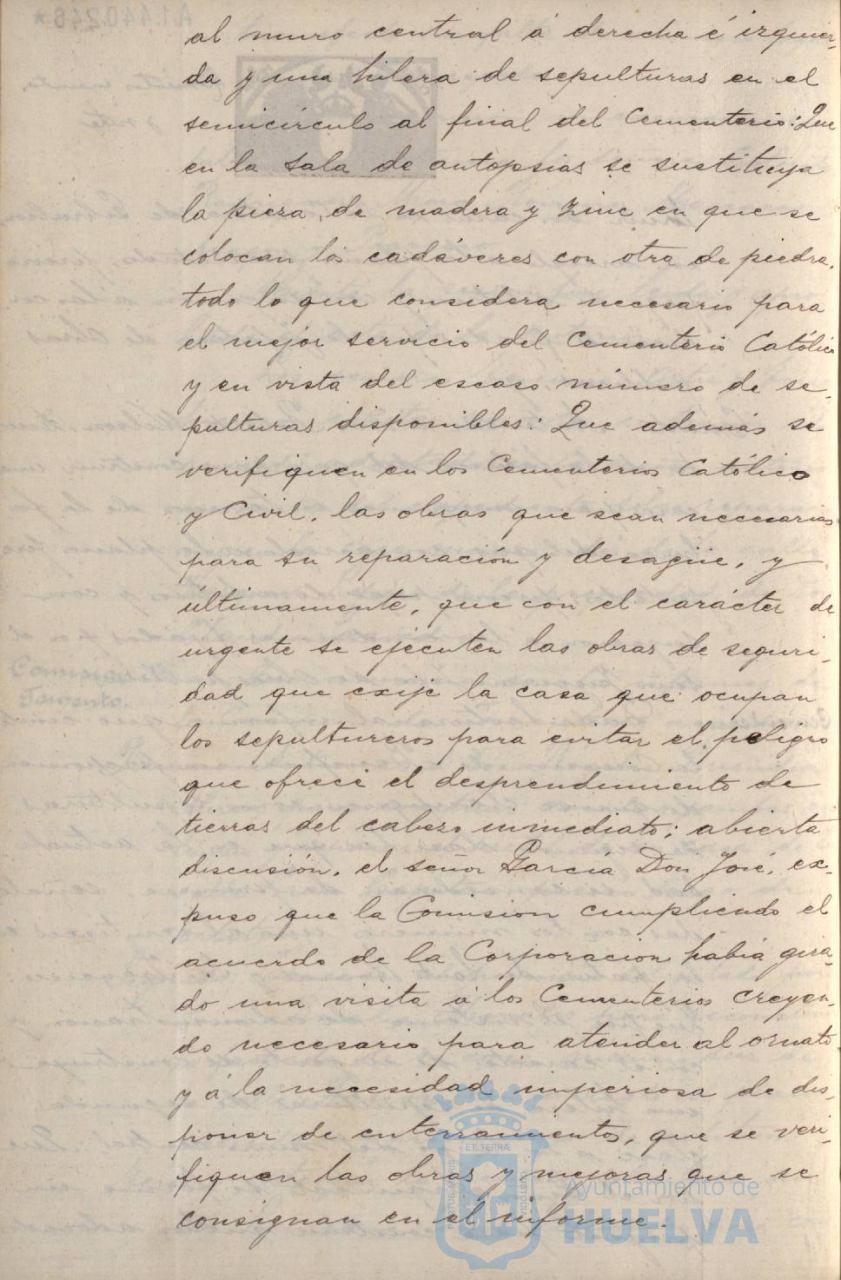 al muro central á derecha é izquier-
da y una hilera de sepulturas en el
semicírculo al final del Cementerio: Que
en la sala de autopsias se sustituya
la pieza, de madera y zinc en que se
colocan los cadáveres con otra de piedra,
todo lo que considera necesario para
el mejor servicio del Cementerio Católico
y en vista del escaso número de se-
pulturas disponibles: Que además se
verifiquen en los Cementerios Católico
y Civil, las obras que sean necesarias
para su reparación y desagüe, y
últimamente, que con el carácter de
urgente se ejecuten las obras de seguri-
dad que exije la casa que ocupan
los sepultureros para evitar el peligro
que ofrece el desprendimiento de
tierras del cabezo inmediato; abierta
discusión, el señor García Don José, ex-
puso que la Comision cumpliendo el
acuerdo de la Corporacion había gira-
do una visita á los Cementerios creyen-
do necesario para atender al ornato
y á la necesidad imperiosa de dis-
poner de enterramientos, que se veri-
fiquen las obras y mejoras que se
consignan en el informe.
Ayuntamiento de
HUELVA